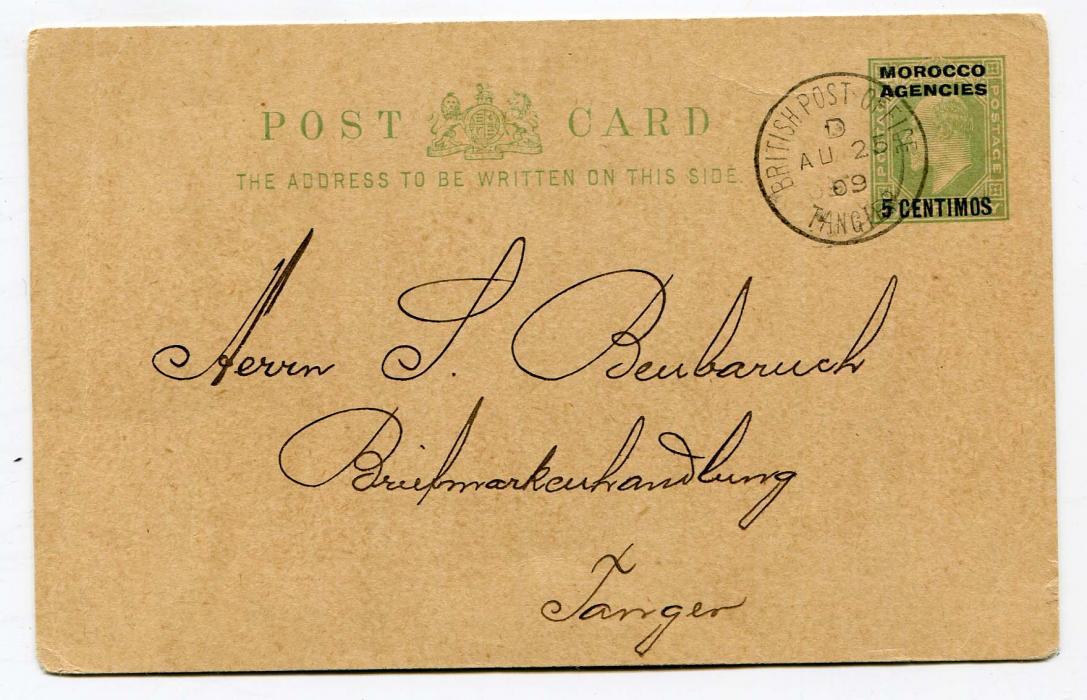 POST CARD
THE ADDRESS TO BE WRITTEN ON THIS SIDE.
MOROCCO
AGENCIES
POSTAGE
5 CENTIMOS
BRITISH POST-OFFICE
D
AU 25
09
TANGIER
Herrn S. Benbaruch
Briefmarkenhandlung
Tanger